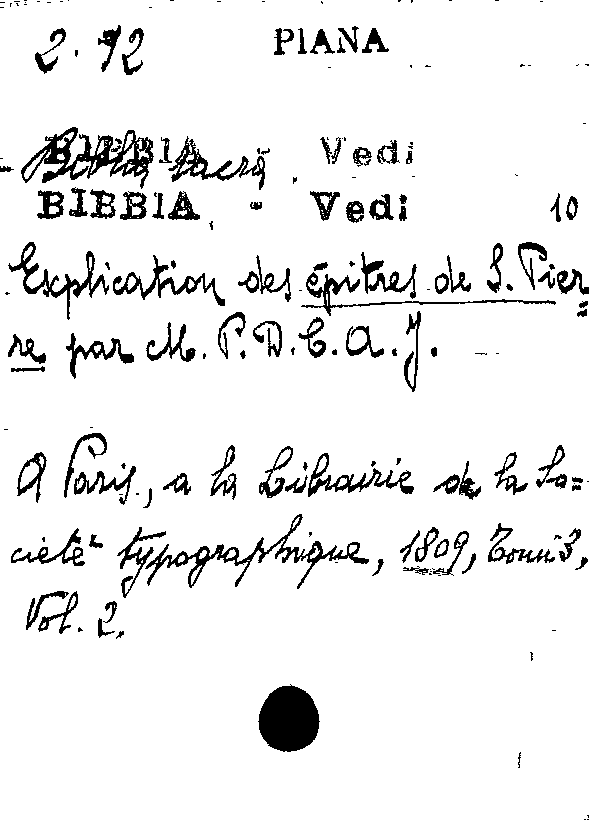 2. 72 PIANA
BIBBIA Vedi
Biblia sacra
BIBBIA - Vedi 10
Explication des épitres de S. Pier=
re par M. P. D. C. A. J.
A Paris, a la Librairie de la So=
cieté typographique, 1809, Tomi 3,
Vol. 2.